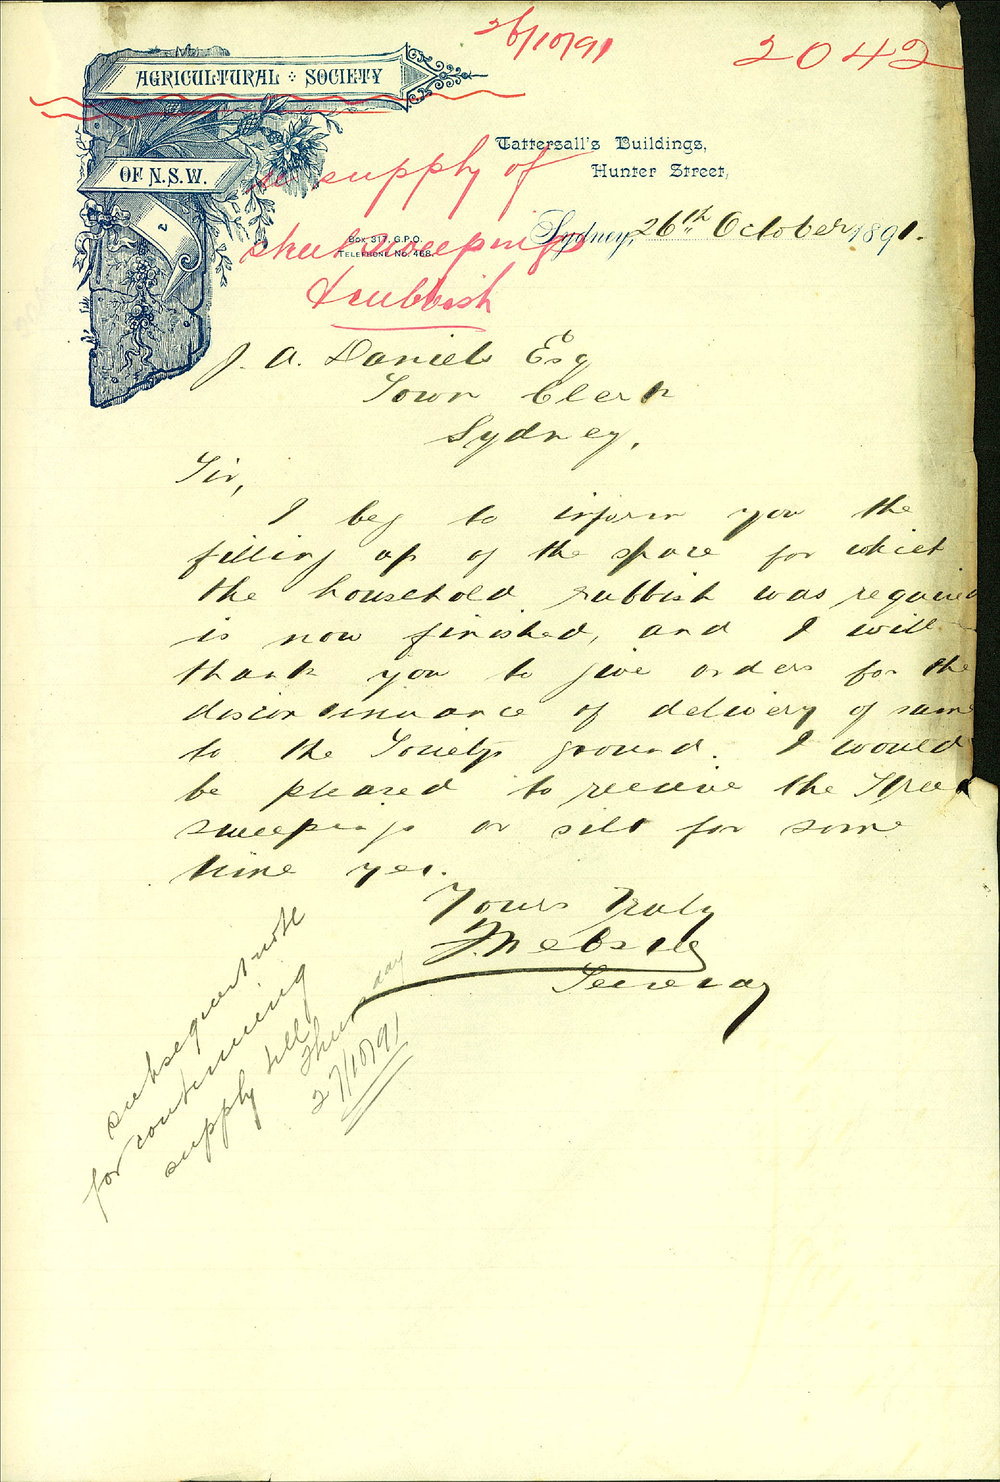 26/10/91
2042
AGRICULTURAL SOCIETY
OF N.S.W.
Tattersall's Buildings,
Hunter Street,
Box 317, G.P.O.
Telephone No. 468.
re supply of
street sweepings
& rubbish
Sydney, 26th October 1891.
J. A. Daniel Esq
Town Clerk
Sydney.
Sir,
I beg to inform you the
filling up of the space for which
the household rubbish was required
is now finished, and I will
thank you to give orders for the
discontinuance of delivery of same
to the Society's ground. I would
be pleased to receive the Street
sweepings or silt for some
time yet.
Yours truly
F. Webster
Secretary
subsequent note
for continuing
supply till Thursday
27/10/91